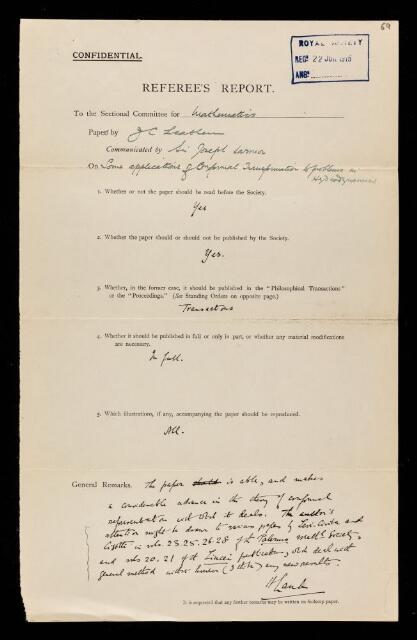 69
CONFIDENTIAL.
ROYAL SOCIETY
REC^D 22 JUN 1915
ANS^D
REFEREE'S REPORT.
To the Sectional Committee for Mathematics
Paper by J C Leathem
Communicated by Sir Joseph Larmor
On Some applications of Conformal Transformation to problems in
Hydrodynamics
1. Whether or not the paper should be read before the Society.
Yes
2. Whether the paper should or should not be published by the Society.
Yes.
3. Whether, in the former case, it should be published in the "Philosophical Transactions"
or the "Proceedings." (See Standing Orders on opposite page.)
Transactions
4. Whether it should be published in full or only in part, or whether any material modifications
are necessary.
In full.
5. Which illustrations, if any, accompanying the paper should be reproduced.
All.
General Remarks. The paper is able, and makes
a considerable advance in the theory of conformal
representation with which it deals. The author's
attention might be drawn to various papers by Levi-Civita and
Cisotti in vols. 23. 25. 26. 28 of the Palermo Math^l Society,
and vols 20. 21 of the Lincei publication, which deal with
general method without however (I think) any new results.
H Lamb
It is requested that any further remarks may be written on foolscap paper.